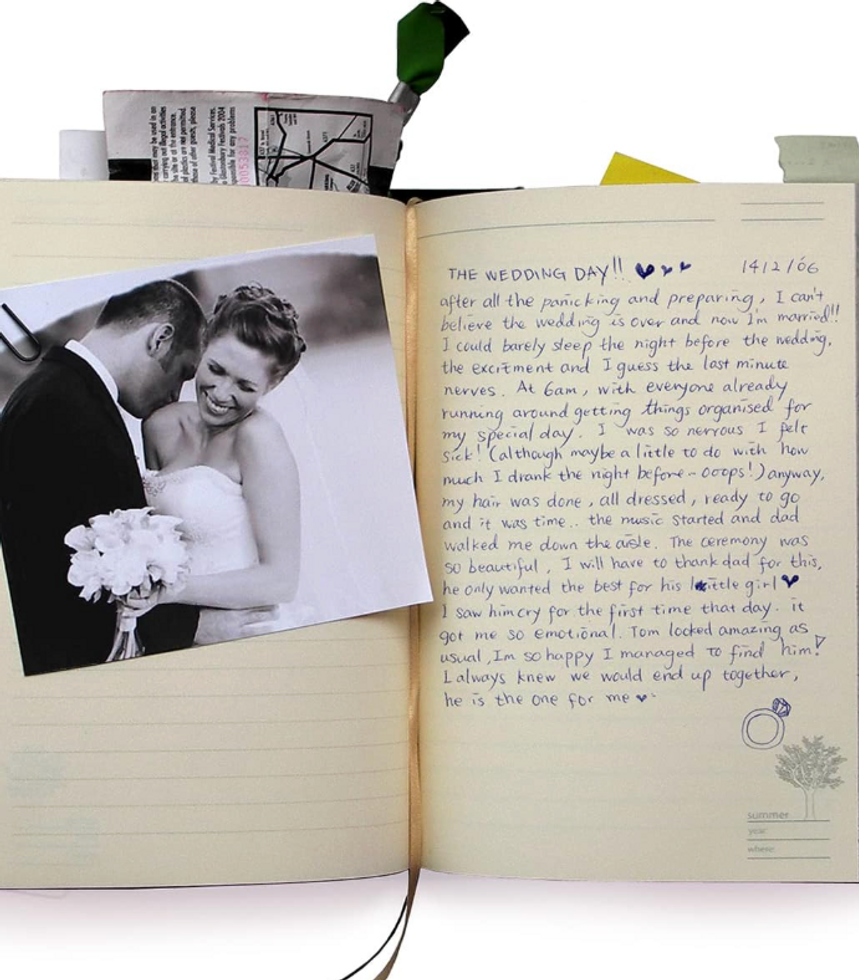 may be used in an
carrying out illegal activities
the site or at the entrance.
plastics are not permitted.
those of other guests, please
Festival Medical Services,
Glastonbury Festivals 2004
for any problems
0053817
THE WEDDING DAY!! ♥♥♥ 14/2/06
after all the panicking and preparing, I can't
believe the wedding is over and now I'm married!!
I could barely sleep the night before the wedding,
the excitment and I guess the last minute
nerves. At 6am, with everyone already
running around getting things organised for
my special day. I was so nervous I felt
sick! (although maybe a little to do with how
much I drank the night before - ooops!) anyway,
my hair was done, all dressed, ready to go
and it was time.. the music started and dad
walked me down the aisle. The ceremony was
so beautiful, I will have to thank dad for this,
he only wanted the best for his little girl ♥
I saw him cry for the first time that day. it
got me so emotional. Tom looked amazing as
usual, Im so happy I managed to find him!
I always knew we would end up together,
he is the one for me ♥
summer
year:
where: